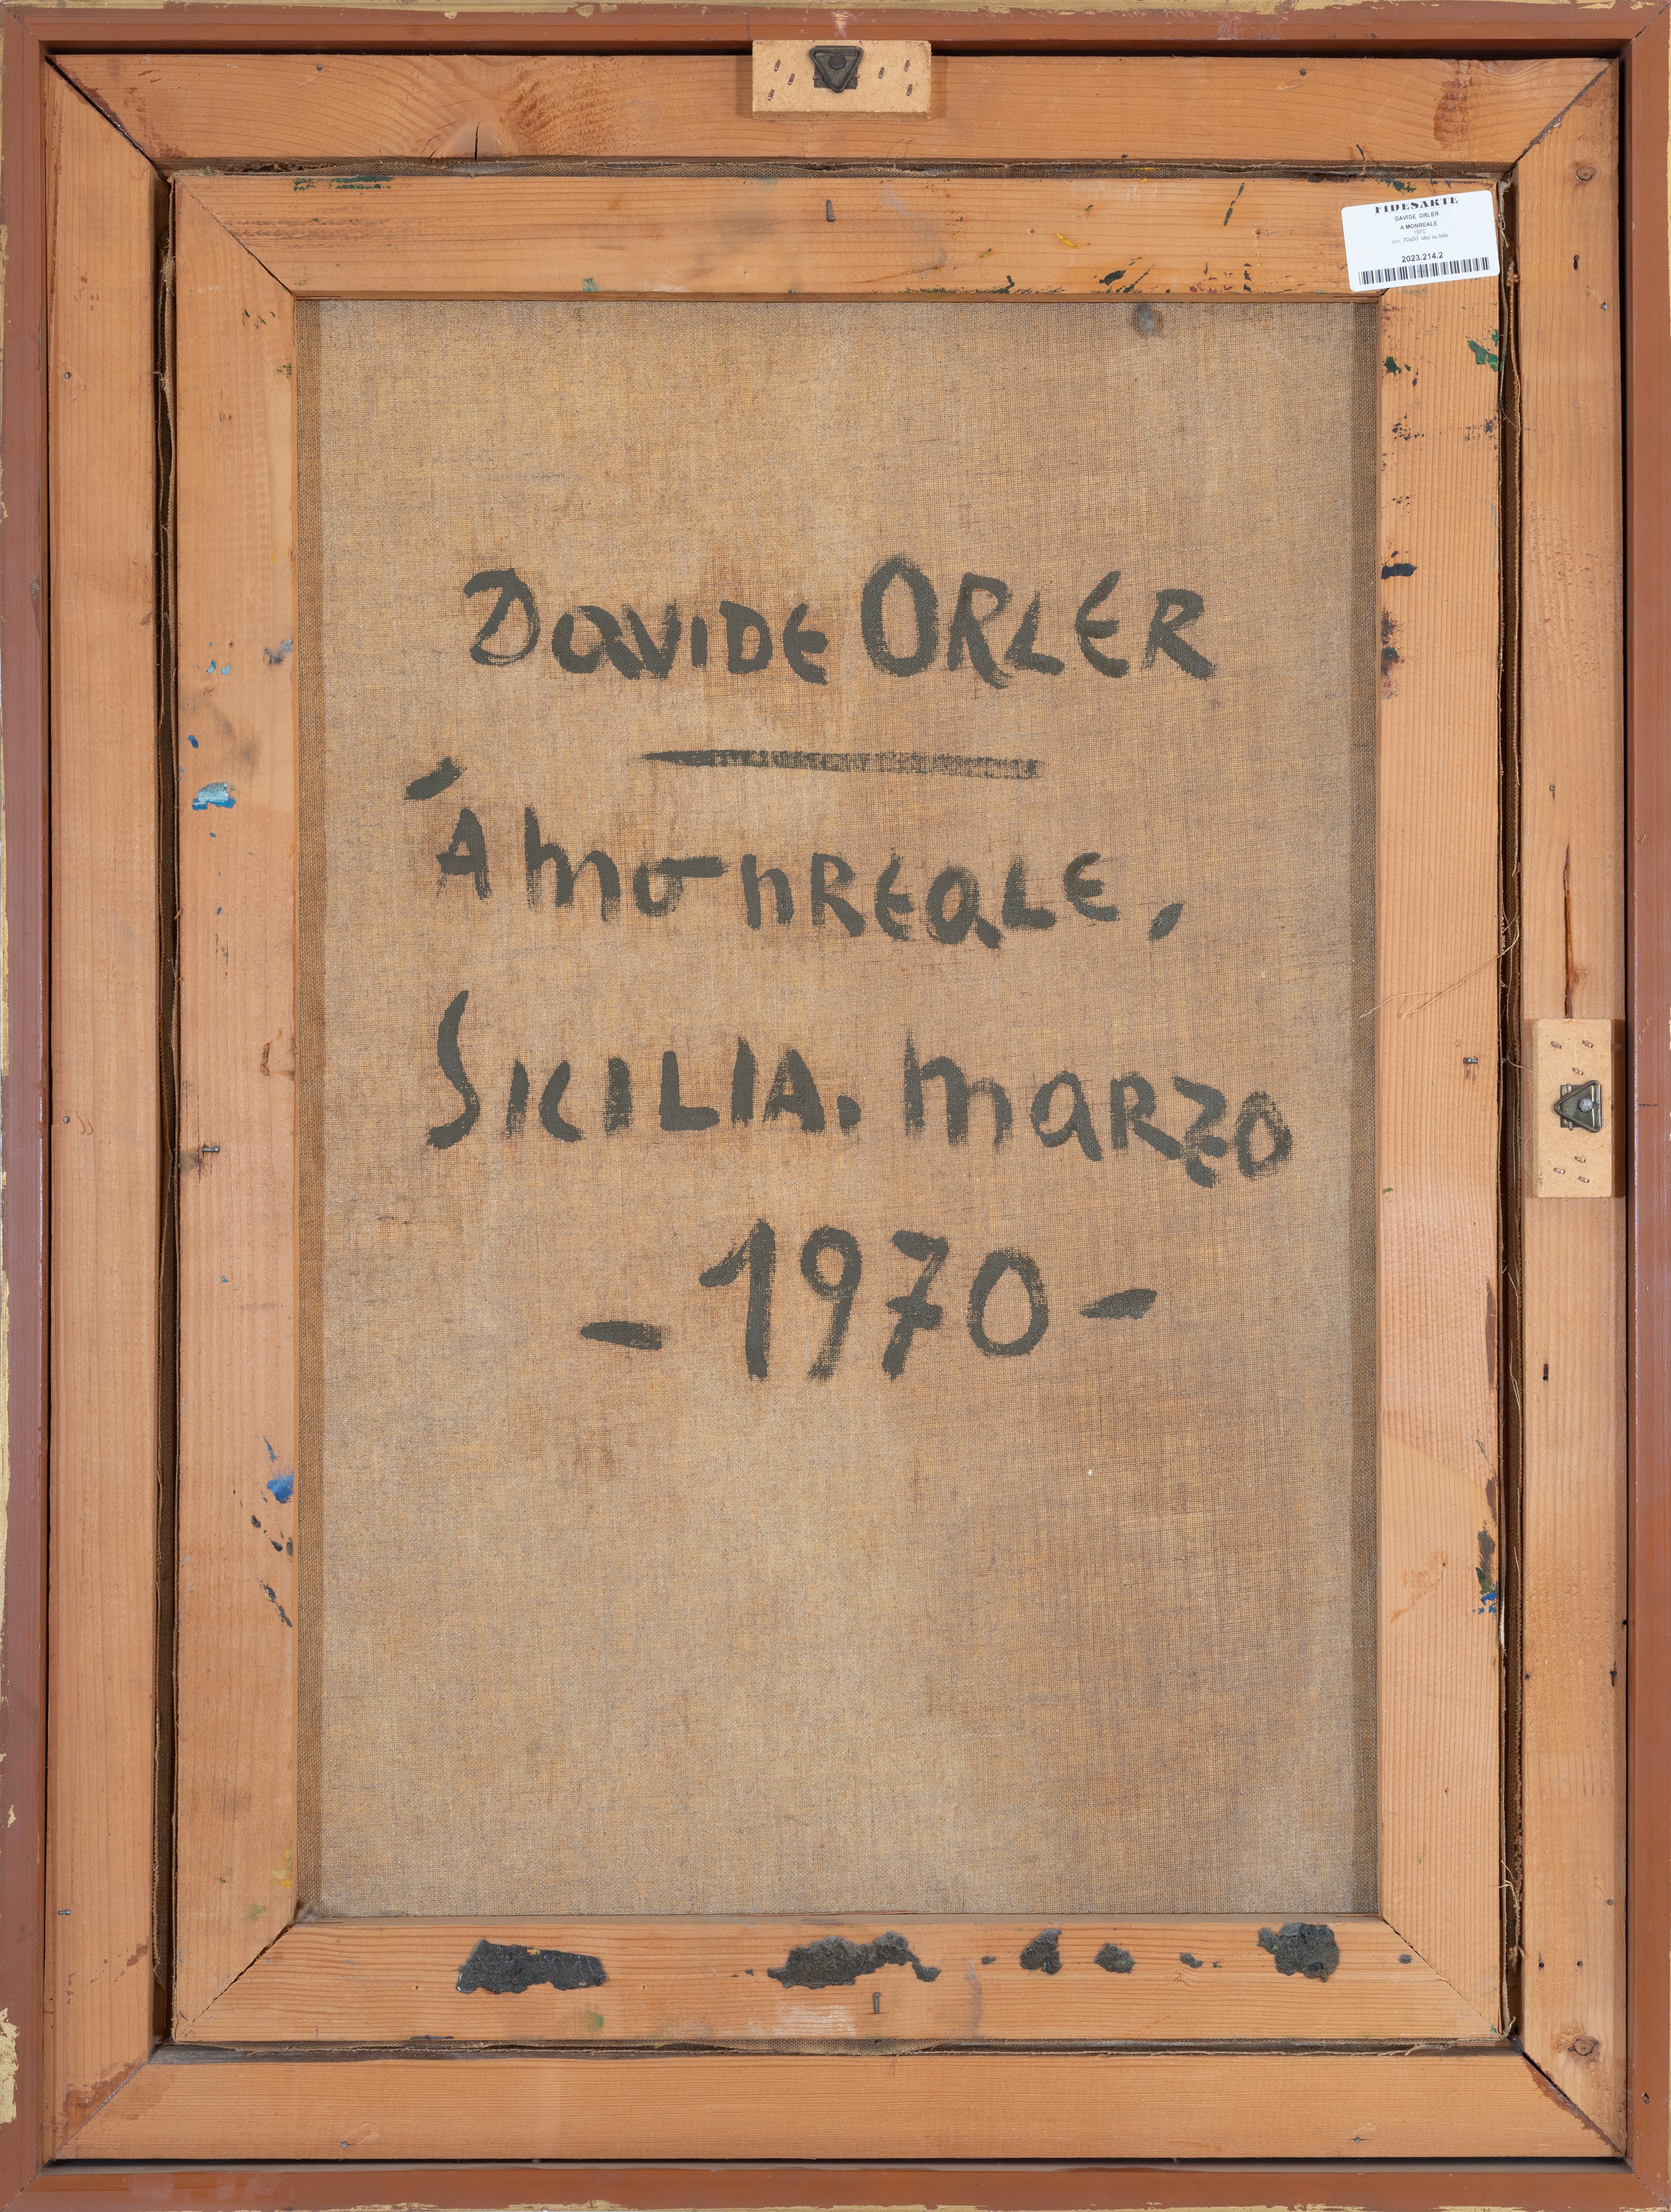 FIDESARTE
DAVIDE ORLER
A MONREALE
1970
cm. 70x50 olio su tela
2023.214.2
DaVIDE ORLER
'A monREALE,
SICILIA. MaRZO
- 1970 -